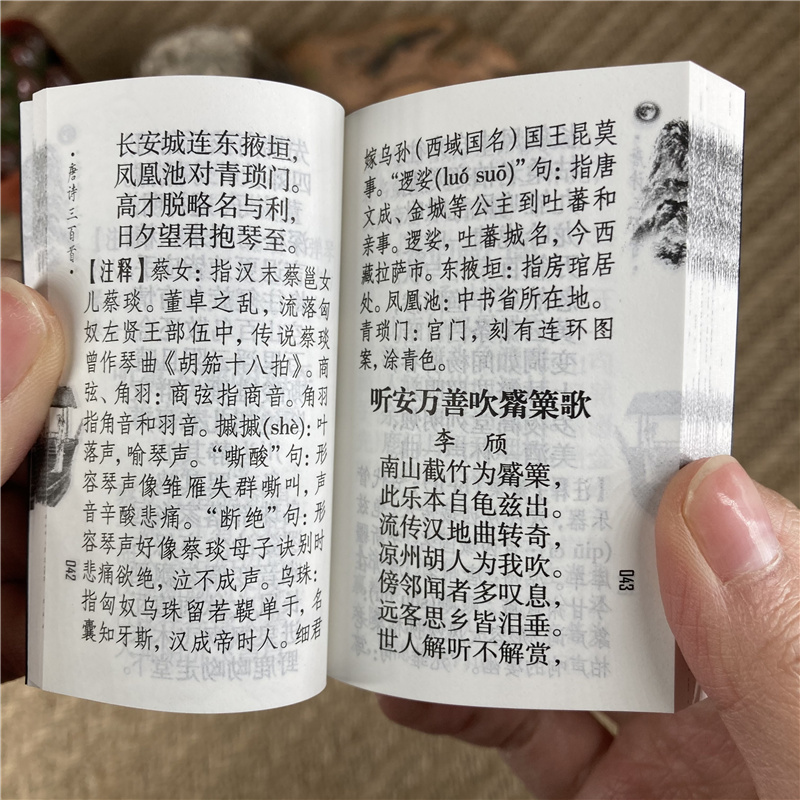 ·唐诗三百首·
长安城连东掖垣，
凤凰池对青琐门。
高才脱略名与利，
日夕望君抱琴至。
【注释】蔡女：指汉末蔡邕女
儿蔡琰。董卓之乱，流落匈
奴左贤王部伍中，传说蔡琰
曾作琴曲《胡笳十八拍》。商
弦、角羽：商弦指商音。角羽
指角音和羽音。摵摵(shè)：叶
落声，喻琴声。“嘶酸”句：形
容琴声像雏雁失群嘶叫，声
音辛酸悲痛。“断绝”句：形
容琴声好像蔡琰母子诀别时
悲痛欲绝，泣不成声。乌珠：
指匈奴乌珠留若鞮单于，名
囊知牙斯，汉成帝时人。细君
042
嫁乌孙（西域国名）国王昆莫
事。“逻娑(luó suō)”句：指唐
文成、金城等公主到吐蕃和
亲事。逻娑，吐蕃城名，今西
藏拉萨市。东掖垣：指房琯居
处。凤凰池：中书省所在地。
青琐门：宫门，刻有连环图
案，涂青色。
听安万善吹觱篥歌
李 颀
南山截竹为觱篥，
此乐本自龟兹出。
流传汉地曲转奇，
凉州胡人为我吹。
傍邻闻者多叹息，
远客思乡皆泪垂。
世人解听不解赏，
043